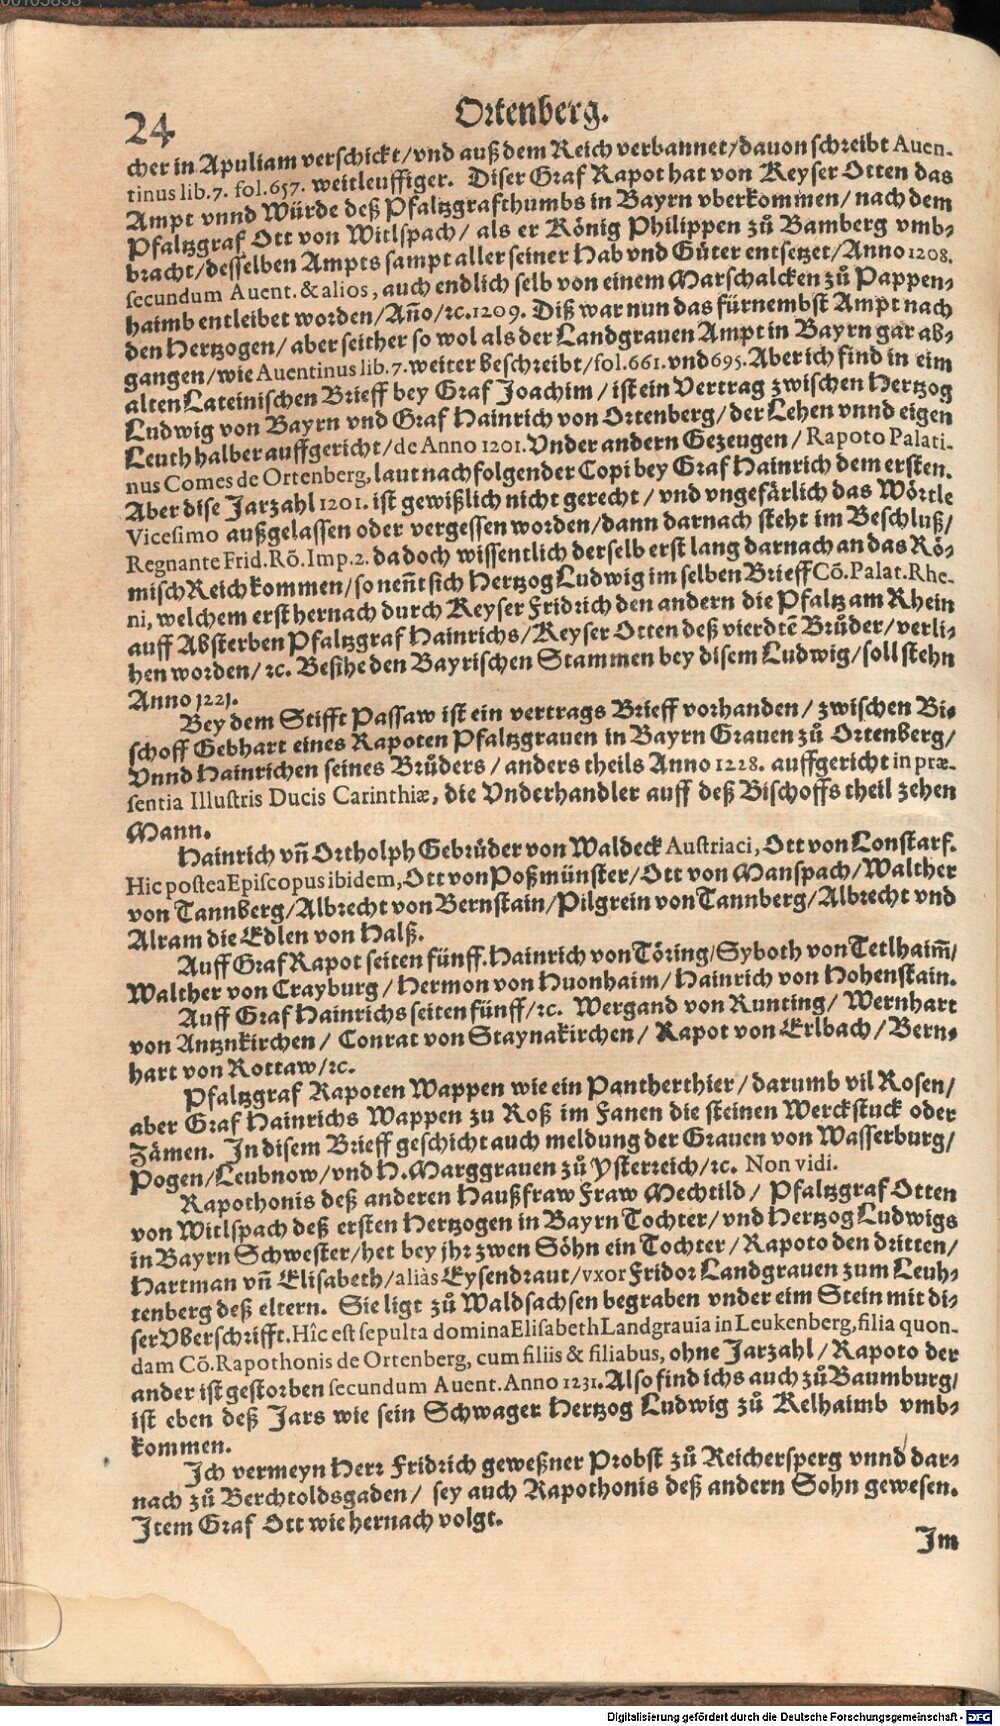 24
Ortenberg.
cher in Apuliam verschickt/vnd auß dem Reich verbannet/dauon schreibt Auen-
tinus lib. 7. fol. 657. weitleuffiger. Diser Graf Rapot hat von Keyser Otten das
Ampt vnnd Würde deß Pfaltzgrafthumbs in Bayrn vberkommen/ nach dem
Pfaltzgraf Ott von Witlspach/ als er König Philippen zů Bamberg vmb-
bracht/desselben Ampts sampt aller seiner Hab vnd Güter entsetzet/Anno 1208.
secundum Auent. & alios, auch endlich selb von einem Marschalcken zů Pappen-
haimb entleibet worden/Año/ꝛc. 1209. Diß war nun das fürnembst Ampt nach
den Hertzogen/ aber seither so wol als der Landgrauen Ampt in Bayrn gar ab-
gangen/wie Auentinus lib. 7. weiter beschreibt/fol. 661. vnd 695. Aber ich find in eim
alten Lateinischen Brieff bey Graf Joachim / ist ein Vertrag zwischen Hertzog
Ludwig von Bayrn vnd Graf Hainrich von Ortenberg/der Lehen vnnd eigen
Leuth halber auffgericht/de Anno 1201. Vnder andern Gezeugen / Rapoto Palati-
nus Comes de Ortenberg, laut nachfolgender Copi bey Graf Hainrich dem ersten.
Aber dise Jarzahl 1201. ist gewißlich nicht gerecht / vnd vngefärlich das Wörtle
Vicesimo außgelassen oder vergessen worden/dann darnach steht im Beschluß/
Regnante Frid. Rõ. Imp. 2. da doch wissentlich derselb erst lang darnach an das Rö-
misch Reich kommen/so neñt sich Hertzog Ludwig im selben Brieff Cõ. Palat. Rhe-
ni, welchem erst hernach durch Keyser Fridrich den andern die Pfaltz am Rhein
auff Absterben Pfaltzgraf Hainrichs/Keyser Otten deß vierdtẽ Brůder/verli-
hen worden/ ꝛc. Besihe den Bayrischen Stammen bey disem Ludwig/soll stehn
Anno 1221.
Bey dem Stifft Passaw ist ein vertrags Brieff vorhanden / zwischen Bi-
schoff Gebhart eines Rapoten Pfaltzgrauen in Bayrn Grauen zů Ortenberg/
Vnnd Hainrichen seines Brůders / anders theils Anno 1228. auffgericht in præ-
sentia Illustris Ducis Carinthiæ, die Vnderhandler auff deß Bischoffs theil zehen
Mann.
Hainrich vñ Ortholph Gebrůder von Waldeck Austriaci, Ott von Lonstarf.
Hic postea Episcopus ibidem, Ott von Poßmünster/Ott von Manspach/Walther
von Tannberg/Albrecht von Bernstain/Pilgrein von Tannberg/Albrecht vnd
Alram die Edlen von Halß.
Auff Graf Rapot seiten fünff. Hainrich von Töring/Syboth von Tetlhaim̃/
Walther von Crayburg / Hermon von Huonhaim / Hainrich von Hohenstain.
Auff Graf Hainrichs seiten fünff/ꝛc. Wergand von Runting/ Wernhart
von Antznkirchen / Conrat von Staynakirchen / Rapot von Erlbach / Bern-
hart von Rottaw/ꝛc.
Pfaltzgraf Rapoten Wappen wie ein Pantherthier / darumb vil Rosen/
aber Graf Hainrichs Wappen zu Roß im Fanen die steinen Werckstuck oder
Zämen. In disem Brieff geschicht auch meldung der Grauen von Wasserburg/
Pogen/Leubnow/vnd H. Marggrauen zů Ysterreich/ꝛc. Non vidi.
Rapothonis deß anderen Haußfraw Fraw Mechtild / Pfaltzgraf Otten
von Witlspach deß ersten Hertzogen in Bayrn Tochter/vnd Hertzog Ludwigs
in Bayrn Schwester/het bey jhr zwen Söhn ein Tochter / Rapoto den dritten/
Hartman vñ Elisabeth/aliàs Eysendraut/vxor Fridor Landgrauen zum Leuh-
tenberg deß eltern. Sie ligt zů Waldsachsen begraben vnder eim Stein mit di-
ser Vberschrifft. Hîc est sepulta domina Elisabeth Landgrauia in Leukenberg, filia quon-
dam Cõ. Rapothonis de Ortenberg, cum filiis & filiabus, ohne Jarzahl / Rapoto der
ander ist gestorben secundum Auent. Anno 1231. Also find ichs auch zů Baumburg/
ist eben deß Jars wie sein Schwager Hertzog Ludwig zů Kelhaimb vmb-
kommen.
Ich vermeyn Herr Fridrich geweßner Probst zů Reichersperg vnnd dar-
nach zů Berchtoldsgaden/ sey auch Rapothonis deß andern Sohn gewesen.
Item Graf Ott wie hernach volgt.
Im
Digitalisierung gefördert durch die Deutsche Forschungsgemeinschaft - DFG